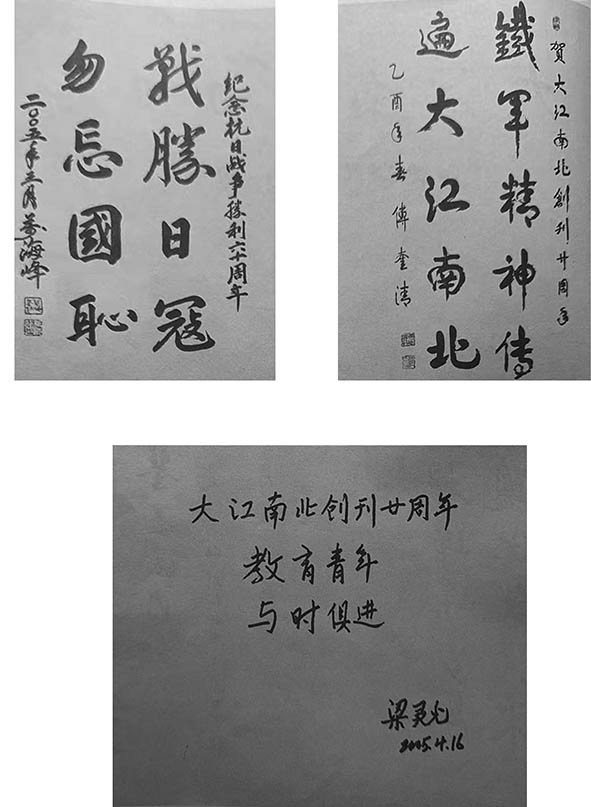 纪念抗日战争勝利六十周年
戰勝日寇
勿忘國恥
二〇〇五年三月 萬海峰
賀大江南北創刊廿周年
鐵軍精神傳
遍大江南北
乙酉年春 傅奎清
大江南北创刊廿周年
教育青年
与时俱进
梁灵光
2005.4.16